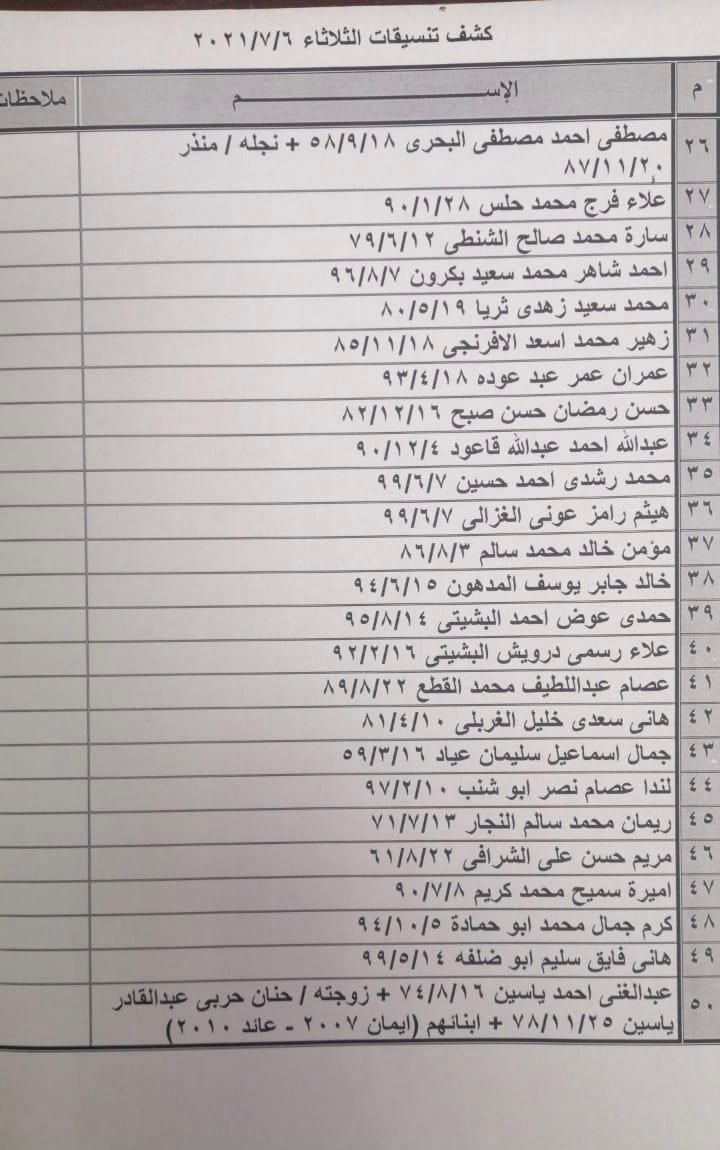 كشف تنسيقات الثلاثاء ٢٠٢١/٧/٦
م الإســـــــــــم ملاحظات
٢٦ مصطفى احمد مصطفى البحرى ٥٨/٩/١٨ + نجله / منذر
٨٧/١١/٢٠
٢٧ علاء فرج محمد حلس ٩٠/١/٢٨
٢٨ سارة محمد صالح الشنطى ٧٩/٦/١٢
٢٩ احمد شاهر محمد سعيد بكرون ٩٦/٨/٧
٣٠ محمد سعيد زهدى ثريا ٨٠/٥/١٩
٣١ زهير محمد اسعد الافرنجى ٨٥/١١/١٨
٣٢ عمران عمر عبد عوده ٩٣/٤/١٨
٣٣ حسن رمضان حسن صبح ٨٢/١٢/١٦
٣٤ عبدالله احمد عبدالله قاعود ٩٠/١٢/٤
٣٥ محمد رشدى احمد حسين ٩٩/٦/٧
٣٦ هيثم رامز عونى الغزالى ٩٩/٦/٧
٣٧ مؤمن خالد محمد سالم ٨٦/٨/٣
٣٨ خالد جابر يوسف المدهون ٩٤/٦/١٥
٣٩ حمدى عوض احمد البشيتى ٩٥/٨/١٤
٤٠ علاء رسمى درويش البشيتى ٩٢/٢/١٦
٤١ عصام عبداللطيف محمد القطع ٨٩/٨/٢٢
٤٢ هانى سعدى خليل الغربلى ٨١/٤/١٠
٤٣ جمال اسماعيل سليمان عياد ٥٩/٣/١٦
٤٤ لندا عصام نصر ابو شنب ٩٧/٢/١٠
٤٥ ريمان محمد سالم النجار ٧١/٧/١٣
٤٦ مريم حسن على الشرافى ٦١/٨/٢٢
٤٧ اميرة سميح محمد كريم ٩٠/٧/٨
٤٨ كرم جمال محمد ابو حمادة ٩٤/١٠/٥
٤٩ هانى فايق سليم ابو ضلفه ٩٩/٥/١٤
٥٠ عبدالغنى احمد ياسين ٧٤/٨/١٦ + زوجته / حنان حربى عبدالقادر
ياسين ٧٨/١١/٢٥ + ابنائهم (ايمان ٢٠٠٧ - عائد ٢٠١٠)